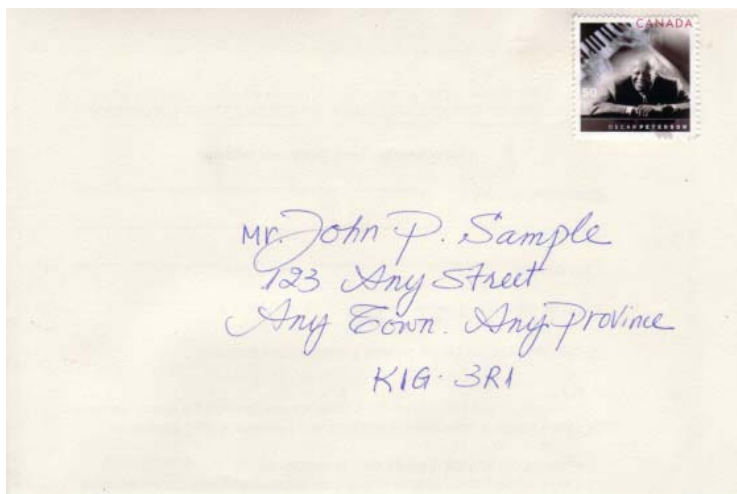 CANADA
50
OSCAR PETERSON
Mr. John P. Sample
123 Any Street
Any Town. Any Province
K1G· 3R1